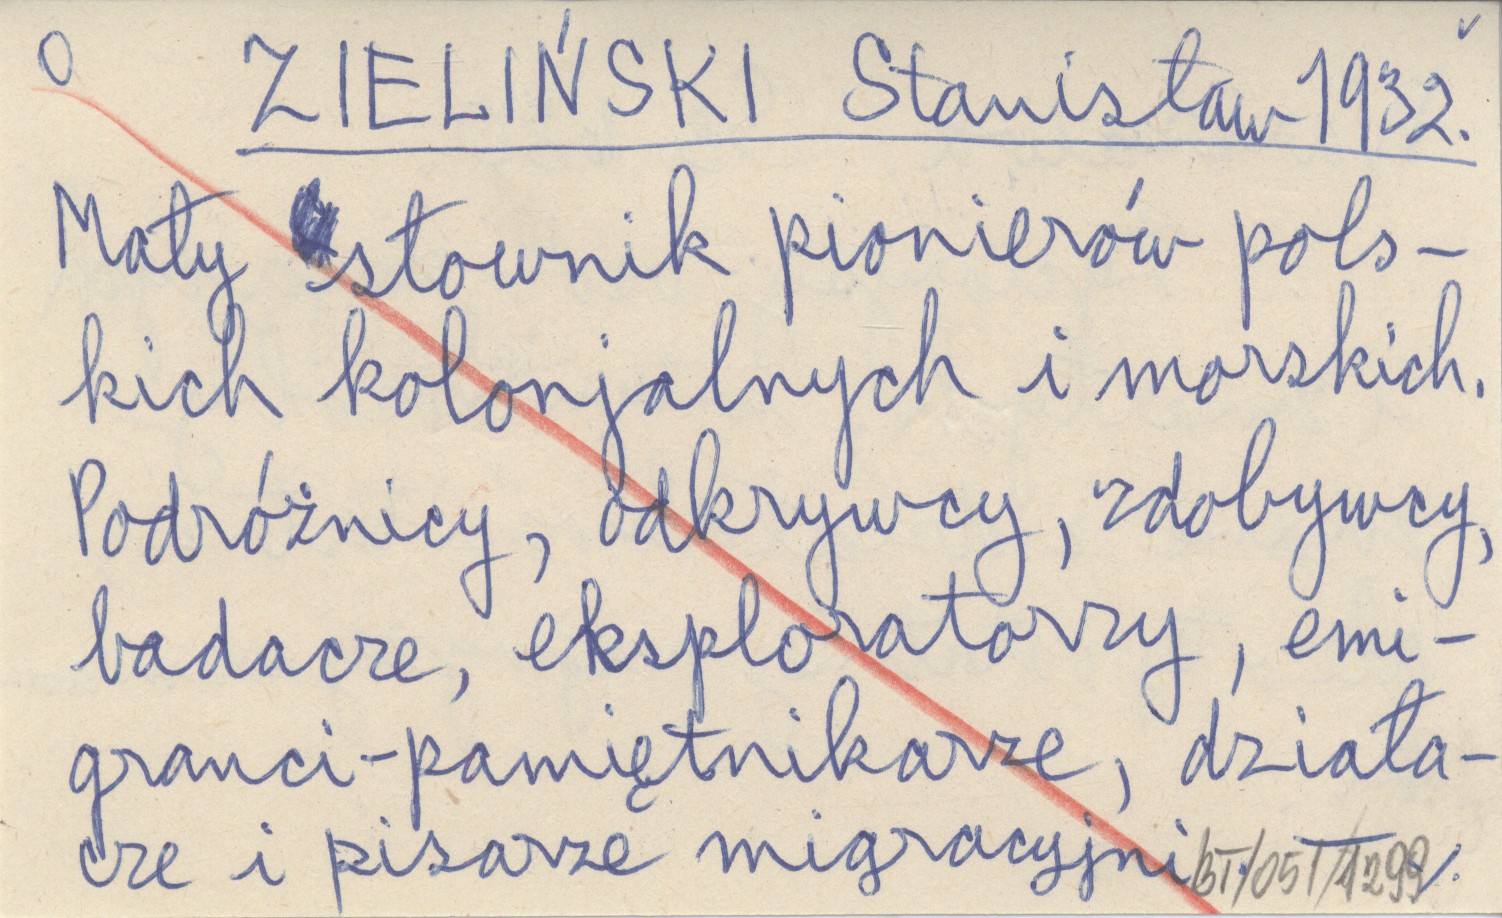 O ZIELIŃSKI Stanisław 1932.
Mały słownik pionierów pols-
kich kolonjalnych i morskich.
Podróżnicy, odkrywcy, zdobywcy,
badacze, eksploratorzy, emi-
granci-pamiętnikarze, działa-
cze i pisarze migracyjni.
BT/051/1299